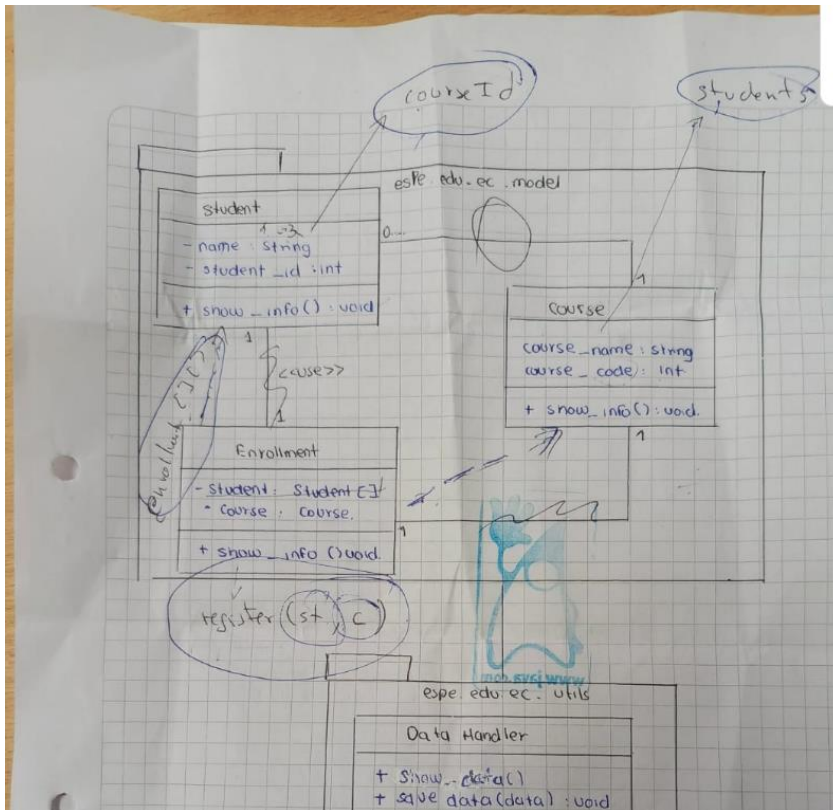 courseId
students
espe.edu.ec.model
Student
- name : String
- student_id : int
+ show_info() : void
1
0...
1
Course
course_name : string
course_code : int
+ show_info() : void.
1
<<use>>
1
1
Enrollment
- Student : Student []
- Course : Course.
+ show_info () void.
1
register (st, c)
espe.edu.ec.utils
Data Handler
+ show_data()
+ save data(data) : void